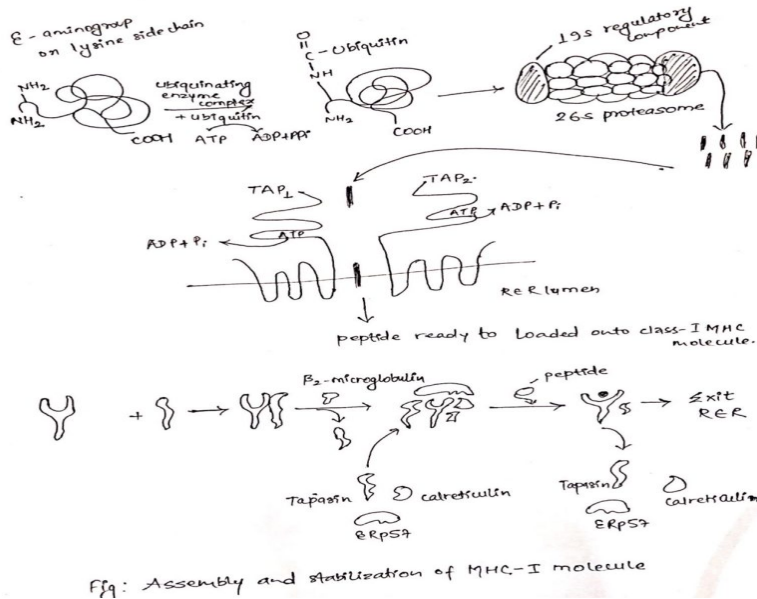 ε-aminogroup
on lysine side chain
NH2
NH2
COOH
ubiquinating
enzyme
complex
+ ubiquitin
ATP ADP+PPi
O
C-Ubiquitin
NH
NH2
COOH
19s regulatory
component
26s proteasome
TAP1
ATP
ADP+Pi
TAP2.
ATP
ADP+Pi
RER lumen
peptide ready to loaded onto class-I MHC
molecule.
+
β2-microglobulin
peptide
Exit
RER
Tapasin
calreticulin
ERp57
Tapasin
calreticulin
ERp57
Fig: Assembly and stabilization of MHC-I molecule